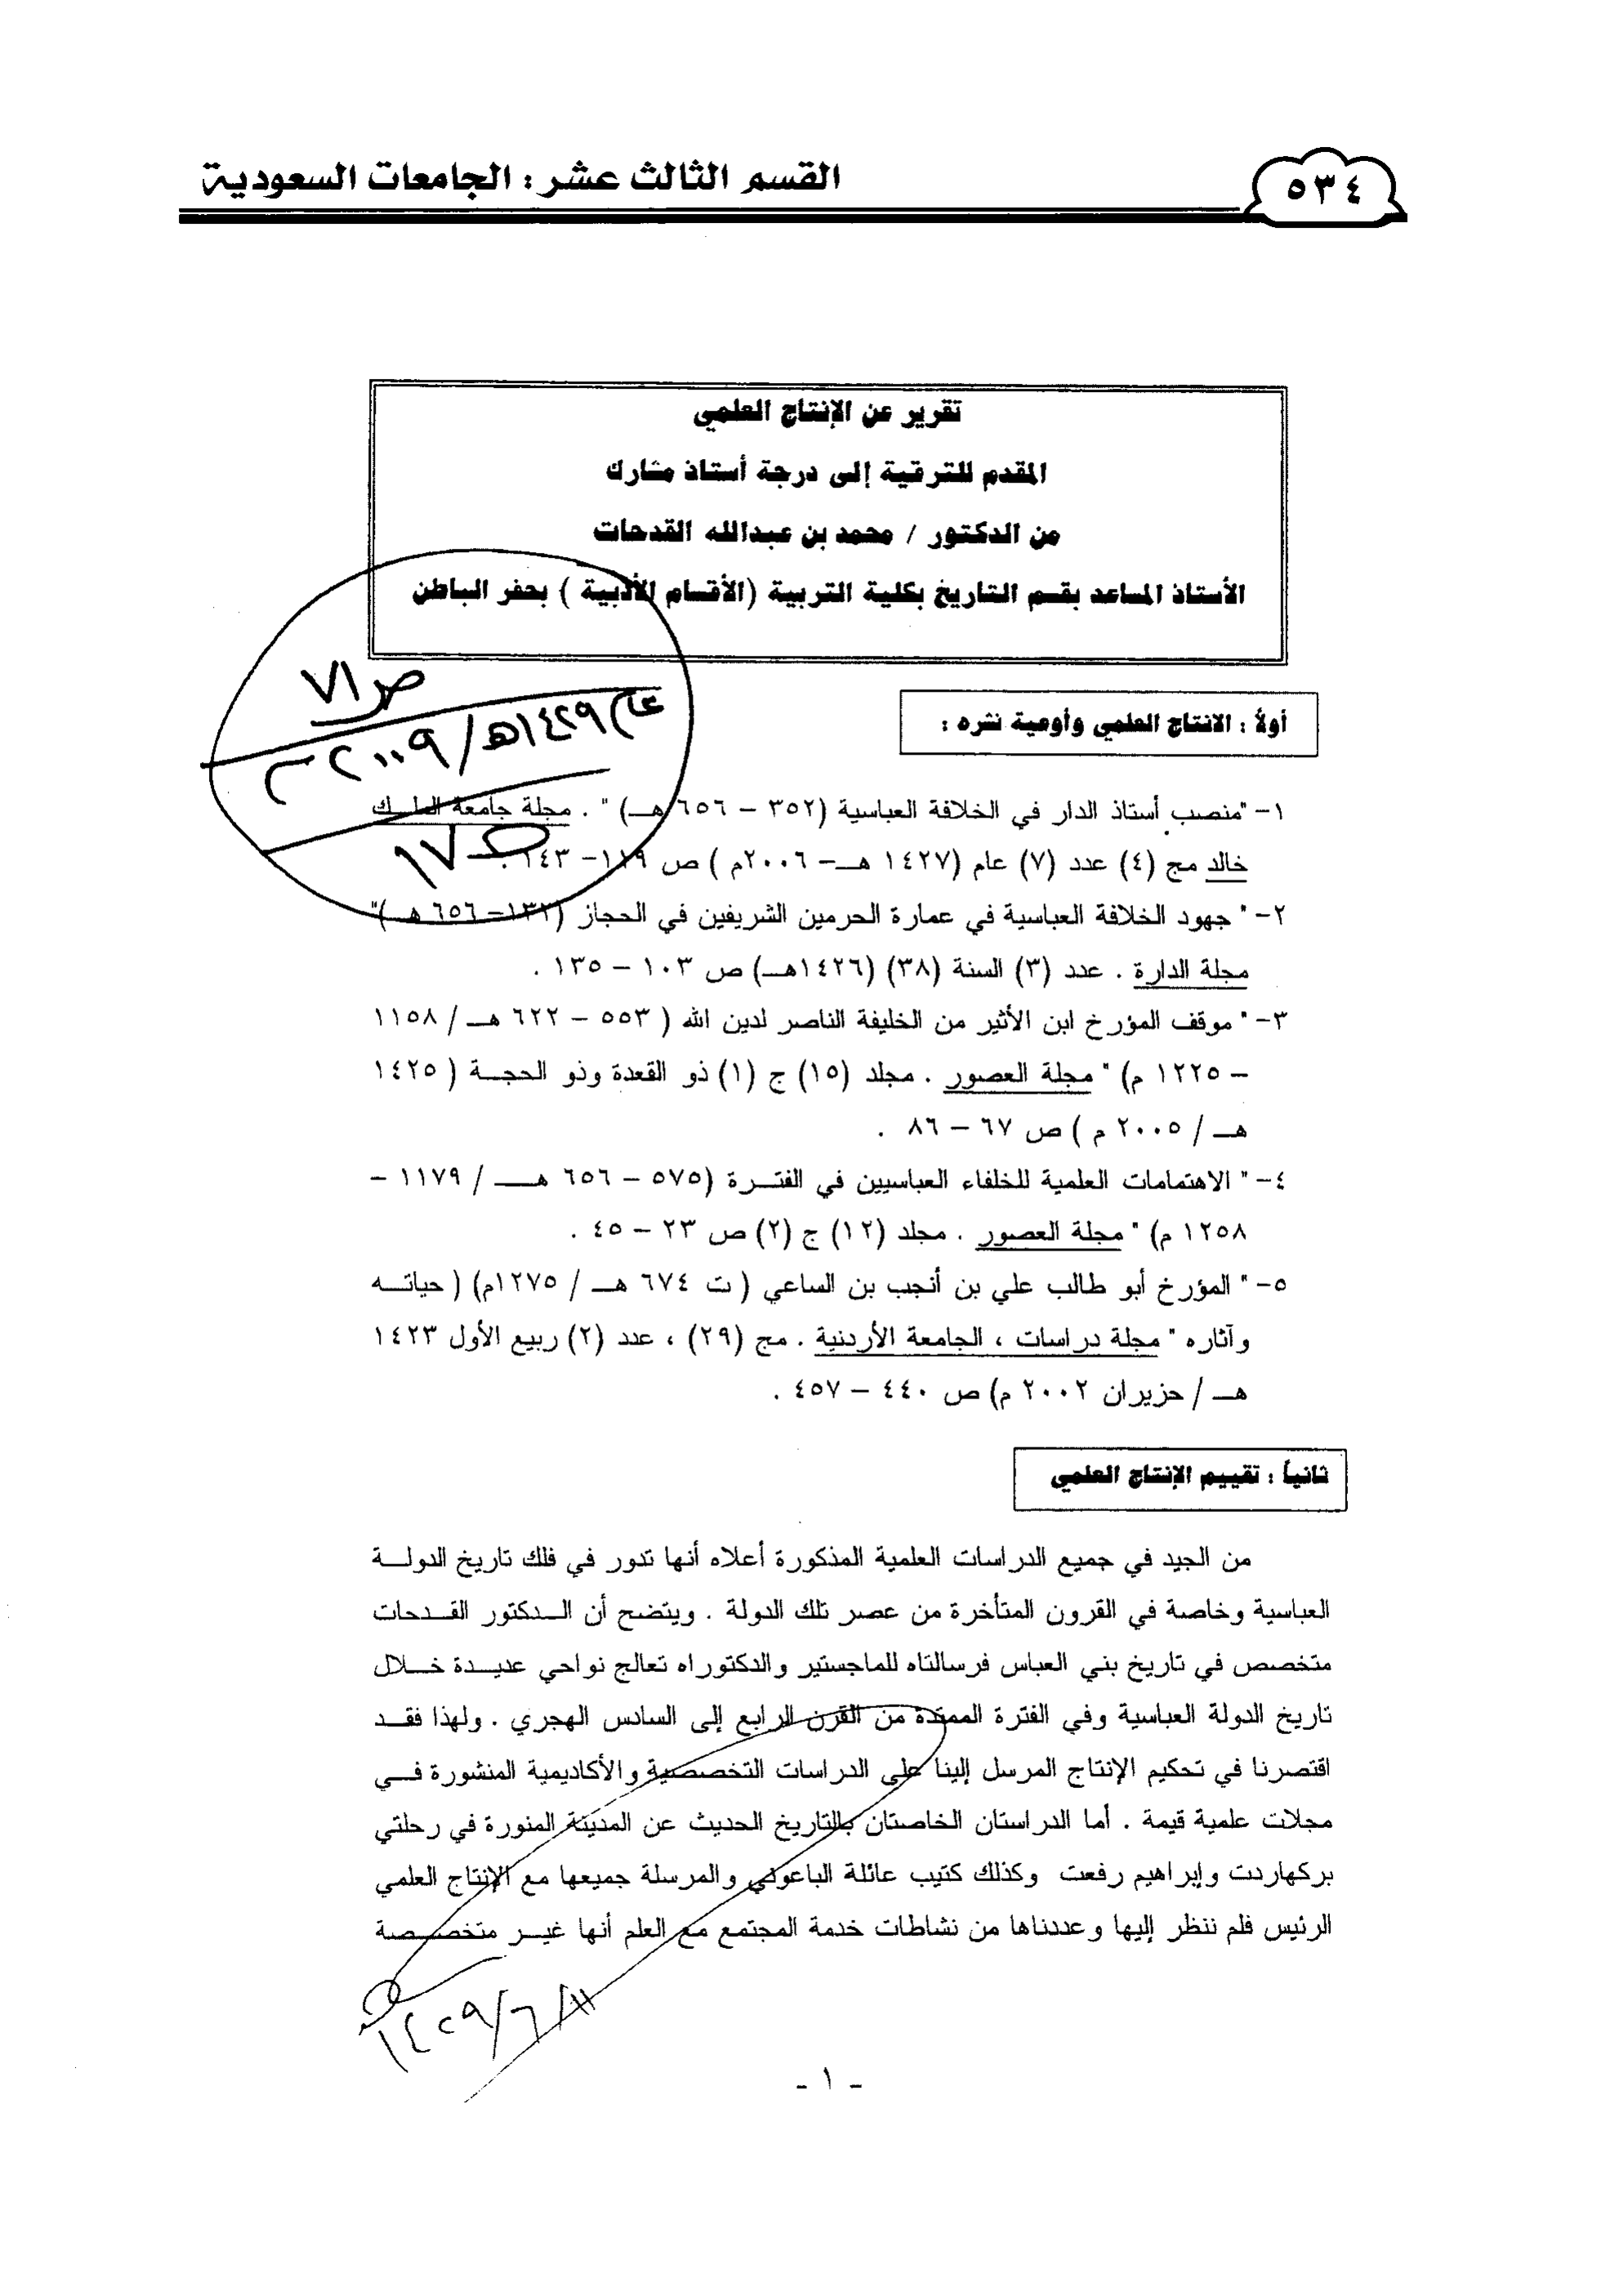 ٥٣٤
القسم الثالث عشر : الجامعات السعودية
تقرير عن الإنتاج العلمي
المقدم للترقية إلى درجة أستاذ مشارك
من الدكتور / محمد بن عبدالله القدحات
الأستاذ المساعد بقسم التاريخ بكلية التربية (الأقسام الأدبية ) بحفر الباطن
ص٧١
عام ١٤٢٩هـ/٢٠٠٩م
أولاً : الانتاج العلمي وأوعية نشره :
١- "منصب أستاذ الدار في الخلافة العباسية (٣٥٢ – ٦٥٦ هـ) " . مجلة جامعة الملك
خالد مج (٤) عدد (٧) عام (١٤٢٧ هـ– ٢٠٠٦م ) ص ١١٩– ١٤٣ .
٢- " جهود الخلافة العباسية في عمارة الحرمين الشريفين في الحجاز (١٣٢– ٦٥٦ هـ )"
مجلة الدارة . عدد (٣) السنة (٣٨) (١٤٢٦هـ) ص ١٠٣ – ١٣٥ .
٣- " موقف المؤرخ ابن الأثير من الخليفة الناصر لدين الله ( ٥٥٣ – ٦٢٢ هـ / ١١٥٨
– ١٢٢٥ م) " مجلة العصور . مجلد (١٥) ج (١) ذو القعدة وذو الحجة ( ١٤٢٥
هـ / ٢٠٠٥ م ) ص ٦٧ – ٨٦ .
٤- " الاهتمامات العلمية للخلفاء العباسيين في الفترة (٥٧٥ – ٦٥٦ هـ / ١١٧٩ –
١٢٥٨ م) " مجلة العصور . مجلد (١٢) ج (٢) ص ٢٣ – ٤٥ .
٥- " المؤرخ أبو طالب علي بن أنجب بن الساعي ( ت ٦٧٤ هـ / ١٢٧٥م) ( حياته
وآثاره " مجلة دراسات ، الجامعة الأردنية . مج (٢٩) ، عدد (٢) ربيع الأول ١٤٢٣
هـ / حزيران ٢٠٠٢ م) ص ٤٤٠ – ٤٥٧ .
ثانياً : تقييم الإنتاج العلمي
من الجيد في جميع الدراسات العلمية المذكورة أعلاه أنها تدور في فلك تاريخ الدولة
العباسية وخاصة في القرون المتأخرة من عصر تلك الدولة . ويتضح أن الدكتور القدحات
متخصص في تاريخ بني العباس فرسالتاه للماجستير والدكتوراه تعالج نواحي عديدة خلال
تاريخ الدولة العباسية وفي الفترة الممتدة من القرن الرابع إلى السادس الهجري . ولهذا فقد
اقتصرنا في تحكيم الإنتاج المرسل إلينا على الدراسات التخصصية والأكاديمية المنشورة في
مجلات علمية قيمة . أما الدراستان الخاصتان بالتاريخ الحديث عن المدينة المنورة في رحلتي
بركهاردت وإبراهيم رفعت وكذلك كتيب عائلة الباعوني والمرسلة جميعها مع الإنتاج العلمي
الرئيس فلم ننظر إليها وعددناها من نشاطات خدمة المجتمع مع العلم أنها غير متخصصة
١٤٢٩/٦/١١
- ١ -